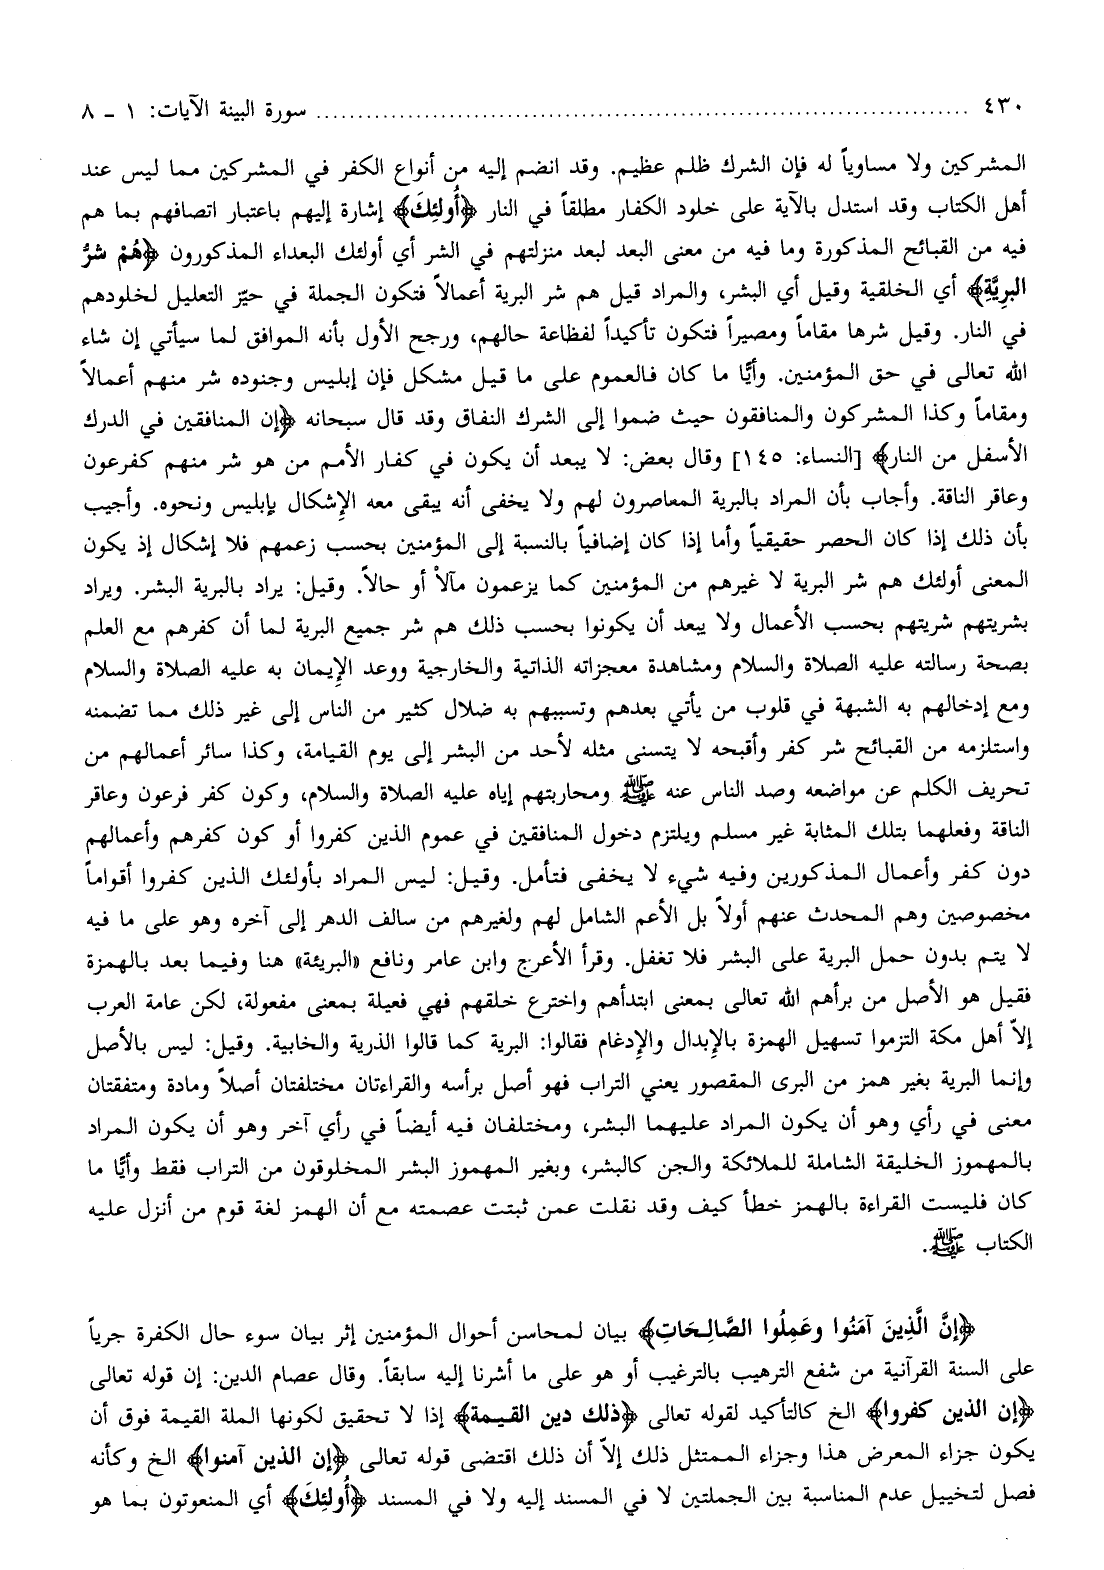 ٤٣٠ ........................................................ سورة البينة الآيات: ١ - ٨
المشركين ولا مساوياً له فإن الشرك ظلم عظيم. وقد انضم إليه من أنواع الكفر في المشركين مما ليس عند
أهل الكتاب وقد استدل بالآية على خلود الكفار مطلقاً في النار ﴿أُولئِكَ﴾ إشارة إليهم باعتبار اتصافهم بما هم
فيه من القبائح المذكورة وما فيه من معنى البعد لبعد منزلتهم في الشر أي أولئك البعداء المذكورون ﴿هُمْ شرُّ
البرِيَّةِ﴾ أي الخلقية وقيل أي البشر، والمراد قيل هم شر البرية أعمالاً فتكون الجملة في حيّز التعليل لخلودهم
في النار. وقيل شرها مقاماً ومصيراً فتكون تأكيداً لفظاعة حالهم، ورجح الأول بأنه الموافق لما سيأتي إن شاء
الله تعالى في حق المؤمنين. وأيًّا ما كان فالعموم على ما قيل مشكل فإن إبليس وجنوده شر منهم أعمالاً
ومقاماً وكذا المشركون والمنافقون حيث ضموا إلى الشرك النفاق وقد قال سبحانه ﴿إن المنافقين في الدرك
الأسفل من النار﴾ [النساء: ١٤٥] وقال بعض: لا يبعد أن يكون في كفار الأمم من هو شر منهم كفرعون
وعاقر الناقة. وأجاب بأن المراد بالبرية المعاصرون لهم ولا يخفى أنه يبقى معه الإِشكال بإبليس ونحوه. وأجيب
بأن ذلك إذا كان الحصر حقيقياً وأما إذا كان إضافياً بالنسبة إلى المؤمنين بحسب زعمهم فلا إشكال إذ يكون
المعنى أولئك هم شر البرية لا غيرهم من المؤمنين كما يزعمون مآلاً أو حالاً. وقيل: يراد بالبرية البشر. ويراد
بشريتهم شريتهم بحسب الأعمال ولا يبعد أن يكونوا بحسب ذلك هم شر جميع البرية لما أن كفرهم مع العلم
بصحة رسالته عليه الصلاة والسلام ومشاهدة معجزاته الذاتية والخارجية ووعد الإِيمان به عليه الصلاة والسلام
ومع إدخالهم به الشبهة في قلوب من يأتي بعدهم وتسببهم به ضلال كثير من الناس إلى غير ذلك مما تضمنه
واستلزمه من القبائح شر كفر وأقبحه لا يتسنى مثله لأحد من البشر إلى يوم القيامة، وكذا سائر أعمالهم من
تحريف الكلم عن مواضعه وصد الناس عنه ﷺ ومحاربتهم إياه عليه الصلاة والسلام، وكون كفر فرعون وعاقر
الناقة وفعلهما بتلك المثابة غير مسلم ويلتزم دخول المنافقين في عموم الذين كفروا أو كون كفرهم وأعمالهم
دون كفر وأعمال المذكورين وفيه شيء لا يخفى فتأمل. وقيل: ليس المراد بأولئك الذين كفروا أقواماً
مخصوصين وهم المحدث عنهم أولاً بل الأعم الشامل لهم ولغيرهم من سالف الدهر إلى آخره وهو على ما فيه
لا يتم بدون حمل البرية على البشر فلا تغفل. وقرأ الأعرج وابن عامر ونافع «البريئة» هنا وفيما بعد بالهمزة
فقيل هو الأصل من برأهم الله تعالى بمعنى ابتدأهم واخترع خلقهم فهي فعيلة بمعنى مفعولة، لكن عامة العرب
إلاّ أهل مكة التزموا تسهيل الهمزة بالإِبدال والإِدغام فقالوا: البرية كما قالوا الذرية والخابية. وقيل: ليس بالأصل
وإنما البرية بغير همز من البرى المقصور يعني التراب فهو أصل برأسه والقراءتان مختلفتان أصلاً ومادة ومتفقتان
معنى في رأي وهو أن يكون المراد عليهما البشر، ومختلفان فيه أيضاً في رأي آخر وهو أن يكون المراد
بالمهموز الخليقة الشاملة للملائكة والجن كالبشر، وبغير المهموز البشر المخلوقون من التراب فقط وأيًّا ما
كان فليست القراءة بالهمز خطأ كيف وقد نقلت عمن ثبتت عصمته مع أن الهمز لغة قوم من أنزل عليه
الكتاب ﷺ.
﴿إنَّ الَّذِينَ آمَنُوا وعَمِلُوا الصَّالِحَاتِ﴾ بيان لمحاسن أحوال المؤمنين إثر بيان سوء حال الكفرة جرياً
على السنة القرآنية من شفع الترهيب بالترغيب أو هو على ما أشرنا إليه سابقاً. وقال عصام الدين: إن قوله تعالى
﴿إن الذين كفروا﴾ الخ كالتأكيد لقوله تعالى ﴿ذلك دين القيمة﴾ إذا لا تحقيق لكونها الملة القيمة فوق أن
يكون جزاء المعرض هذا وجزاء الممتثل ذلك إلاّ أن ذلك اقتضى قوله تعالى ﴿إن الذين آمنوا﴾ الخ وكأنه
فصل لتخييل عدم المناسبة بين الجملتين لا في المسند إليه ولا في المسند ﴿أُولئِكَ﴾ أي المنعوتون بما هو